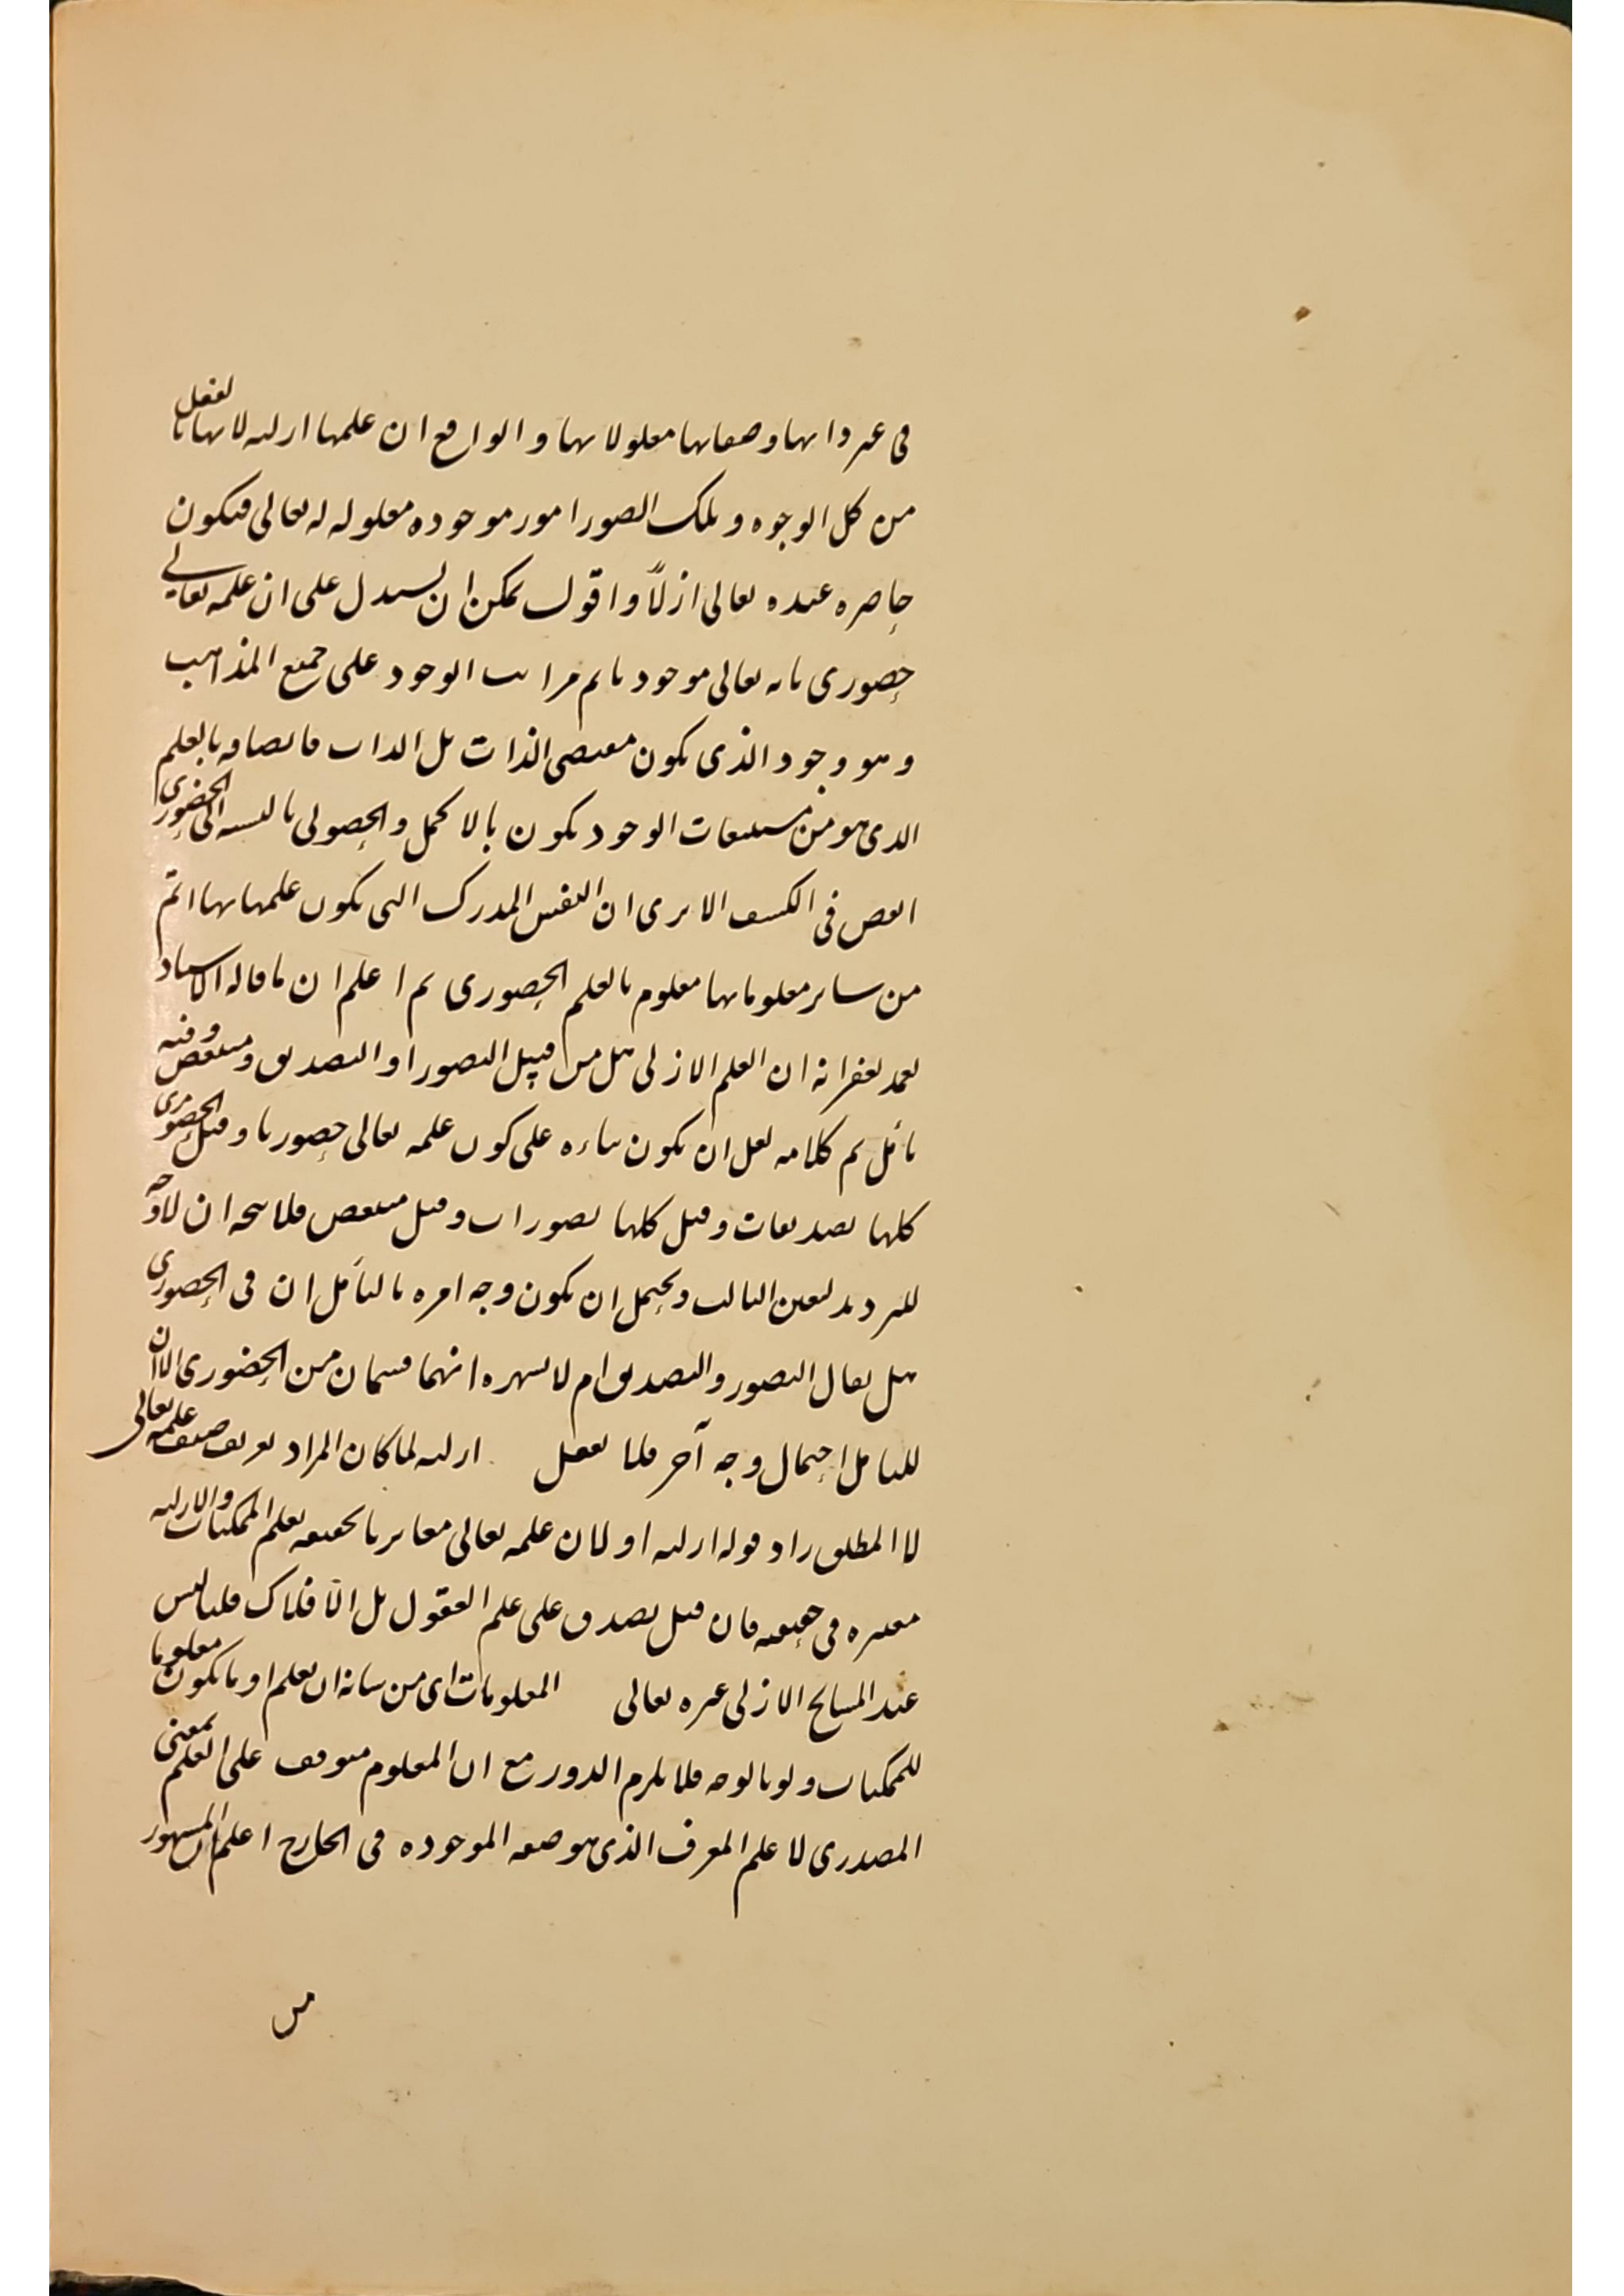 فى غير ذاتها وصفاتها معلولاتها والواقع ان علمها ازليه لانها بالفعل
من كل الوجوه وتلك الصور امور موجوده معلوله له تعالى فيكون
حاضره عنده تعالى ازلاً واقول يمكن ان يستدل على ان علمه تعالى
حضورى بانه تعالى موجود باتم مراتب الوجود على جميع المذاهب
وهو وجود الذى يكون مقتضى الذات بل الذات فاتصافه بالعلم
الذى هو من مستتبعات الوجود يكون بالاكمل والحصولى بالنسبه الى الحضورى
انقص فى الكشف الا يرى ان النفس المدرك التى يكون علمها بها اتم
من ساير معلوماتها معلوم بالعلم الحضورى ثم اعلم ان ما قاله الاستاد
تغمد بغفرانه ان العلم الازلى هل من قبيل التصور او التصديق او متبعض وفيه
تأمل تم كلامه لعل ان يكون بناءه على كون علمه تعالى حضوريا وقيل الحضورى
كلها تصديقات وقيل كلها تصورات وقيل متبعض فلا يتجه ان لا وجه
للترديد لتعين الثالث ويحتمل ان يكون وجه امره بالتأمل ان فى الحضورى
هل يقال التصور والتصديق ام لا لشهره انهما قسمان من الحضورى الا ان
للتامل احتمال وجه آخر فلا تغفل ازليه لما كان المراد تعريف صفه علمه تعالى
لا المطلق زاد قوله ازليه او لان علمه تعالى مغاير بالحقيقه لعلم الممكنات والازليه
معتبره فى حقيقته فان قيل يصدق على علم العقول بل الافلاك قلنا ليس
عند المشايخ الازلى غيره تعالى المعلومات اى من شانه ان يعلم او ما يكون معلوما
للممكنات ولو بالوجه فلا يلزم الدور مع ان المعلوم متوقف على العلم بمعنى
المصدرى لا علم المعرف الذى هو صفه الموجوده فى الخارج اعلم ان المشهور
من